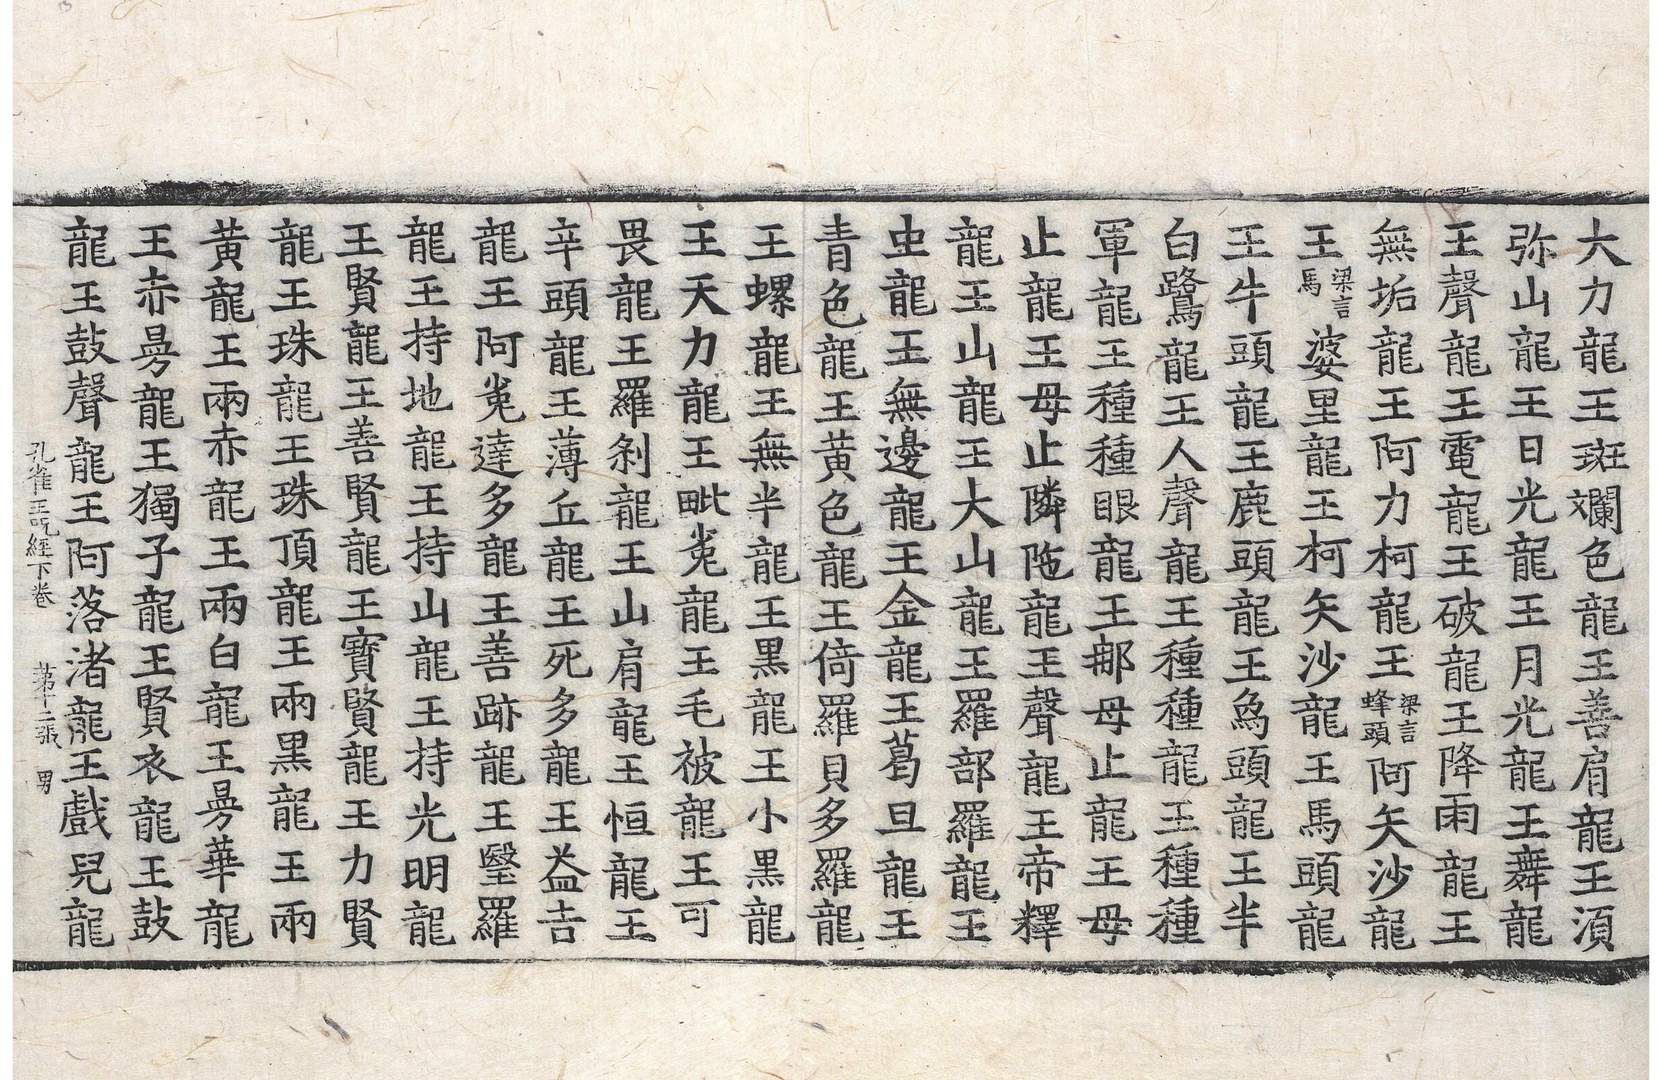 大力龍王斑斕色龍王善肩龍王湏
弥山龍王日光龍王月光龍王舞龍
王聲龍王電龍王破龍王降雨龍王
無垢龍王阿力柯龍王梁言蜂頭阿矢沙龍
王梁言馬婆里龍王柯矢沙龍王馬頭龍
王牛頭龍王鹿頭龍王為頭龍王半
白鷺龍王人聲龍王種種龍王種種
軍龍王種種眼龍王那母止龍王母
止龍王母止隣陁龍王聲龍王帝釋
龍王山龍王大山龍王羅部羅龍王
虫龍王無邊龍王金龍王葛旦龍王
青色龍王黃色龍王倚羅貝多羅龍
王螺龍王無半龍王黑龍王小黑龍
王天力龍王毗㝹龍王毛被龍王可
畏龍王羅刹龍王山肩龍王恒龍王
辛頭龍王薄丘龍王死多龍王益吉
龍王阿㝹達多龍王善跡龍王瑿羅
龍王持地龍王持山龍王持光明龍
王賢龍王善賢龍王寶賢龍王力賢
龍王珠龍王珠頂龍王兩黑龍王兩
黃龍王兩赤龍王兩白龍王㬅華龍
王赤㬅龍王獨子龍王賢衣龍王鼓
龍王鼓聲龍王阿落渚龍王戲兒龍
孔雀王呪經下卷 第十二張 男